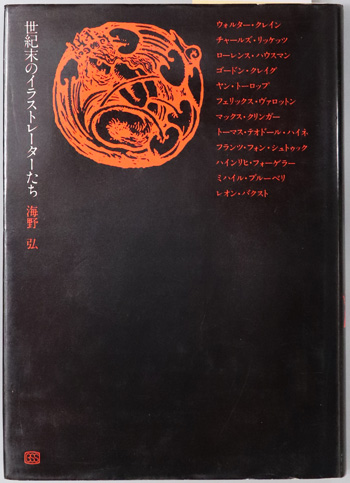 世紀末のイラストレーターたち 海野 弘
ウォルター・クレイン
チャールズ・リッケッツ
ローレンス・ハウスマン
ゴードン・クレイグ
ヤン・トーロップ
フェリックス・ヴァロットン
マックス・クリンガー
トーマス・テオドール・ハイネ
フランツ・フォン・シュトゥック
ハインリヒ・フォーゲラー
ミハイル・ブルーベリ
レオン・バクスト